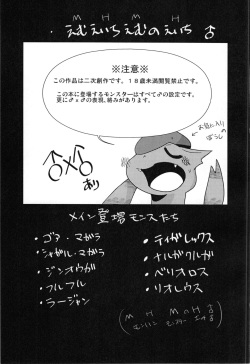 M H M H
・えむえいちえむのえいち ♂
※注意※
この作品は二次創作です。18歳未満閲覧禁止です。
この本に登場するモンスターはすべて♂の設定です。
更に♂x♂の表現、絡みがあります。
お気に入りの
ぼうし
♂x♂
あり
メイン登場モンスたち
・ゴア・マガラ
・シャガル・マガラ
・ジンオウガ
・フルフル
・ラージャン
・ティガレックス
・ナルガクルガ
・ベリオロス
・リオレウス
M H M の H ♂